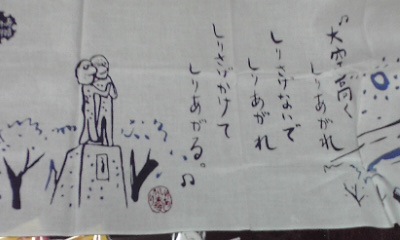 『大空高く
しりあがれ
しりさげないで
しりあがれ
しりさげかけて
しりあがる。♫